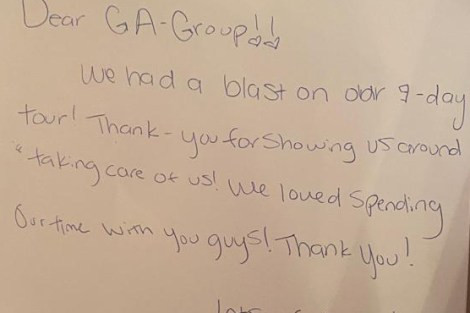 Dear GA-Group!!
We had a blast on our 9-day
tour! Thank-you for showing us around
& taking care of us! We loved spending
Our time with you guys! Thank You!